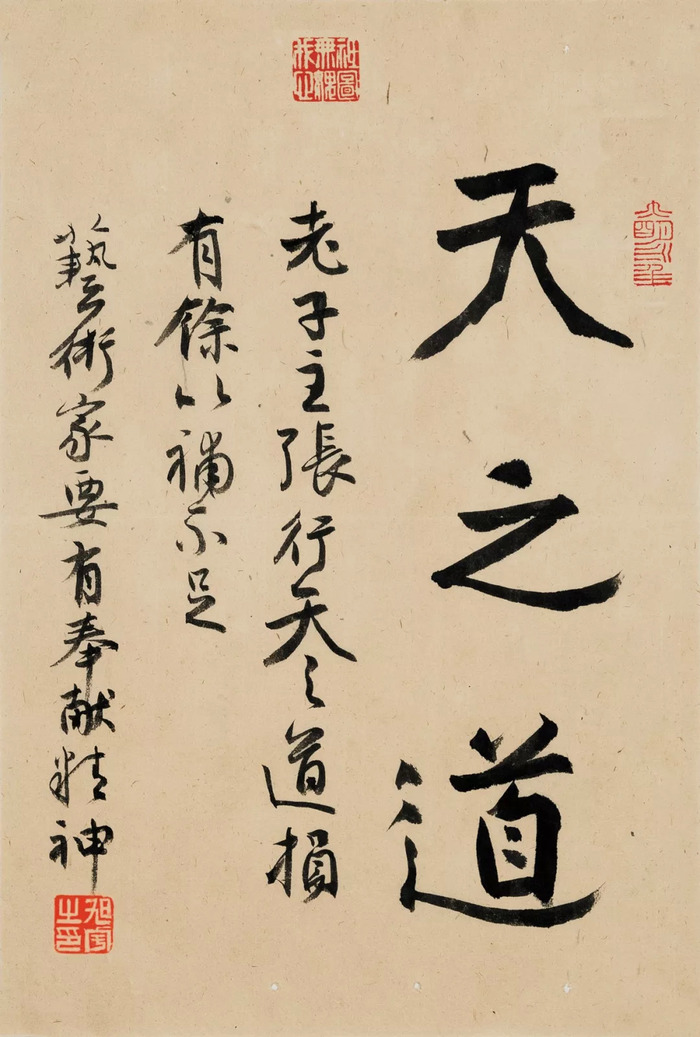 天之道
老子主張行天之道損
有餘以補不足
藝術家要有奉献精神